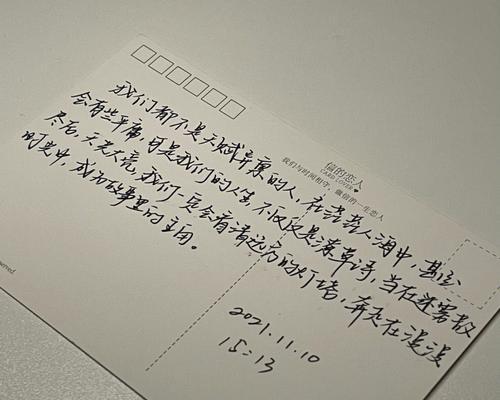 我们都不是天赋异禀的人，在芸芸人海中，甚至
会有些平庸，可是我们的人生不仅仅是潦草诗，当在迷雾散
尽后，天光大亮，我们一定会看清远方的灯塔，奔走在漫漫
时光中，成为故事里的主角。
信的恋人
CARD LOVER
我们与时间相守，做信的一生恋人
2021.11.10
15:13